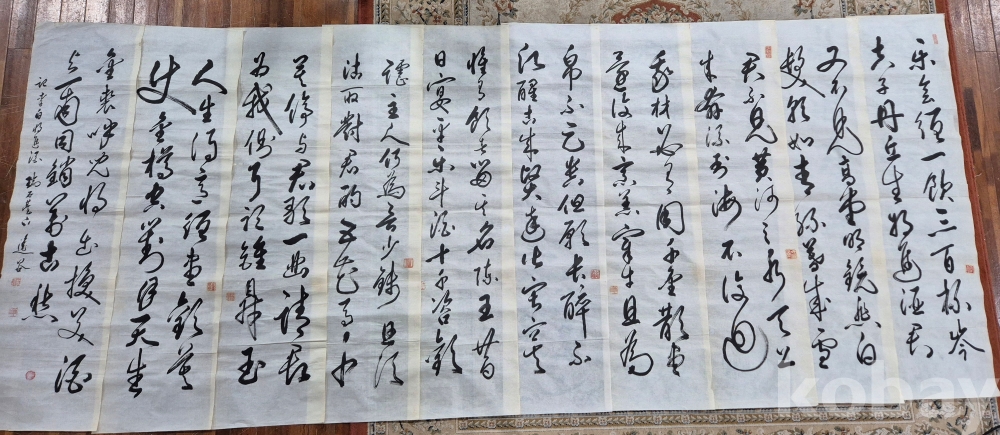 樂會須一飲三百杯岑
夫子丹丘生將進酒君
又不見高堂明鏡悲白
髮朝如青絲暮成雪
君不見黃河之水天上
來奔流到海不復回
我材必有用千金散盡
還復來烹羊宰牛且為
帛不足貴但願長醉不
醒古來賢達皆寂寞
惟有飲者留其名陳王昔
日宴平樂斗酒十千恣歡
謔主人何為言少錢且須
沽取對君酌五花馬千
莫停與君歌一曲請君
為我側耳聽鐘鼎玉
人生得意須盡歡莫
使金樽空對月天生
金裘呼兒將出換美酒
與爾同銷萬古愁
李白將進酒
kobay